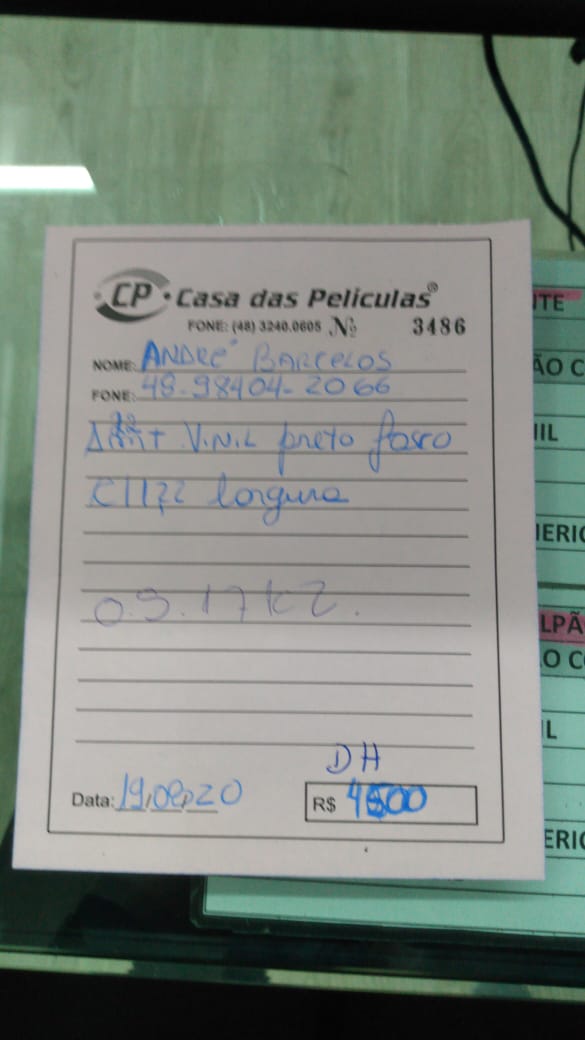 CP • Casa das Películas®
FONE: (48) 3240.0605 Nº 3486
NOME: ANDRÉ BARCELOS
FONE: 48-98404-2066
VINIL preto fosco
C/1,22 largura
O.S. 17KZ.
DH
Data: 19,08,20 R$ 4500
ITE
ÃO C
IIL
IERIC
LPÃ
O CO
IL
ERIC